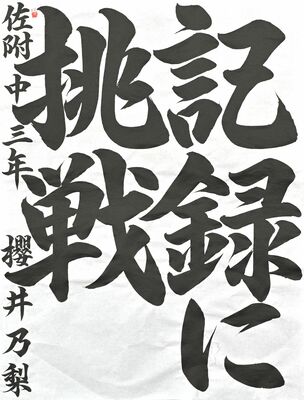 記録に
挑戦
佐附中三年 櫻井乃梨